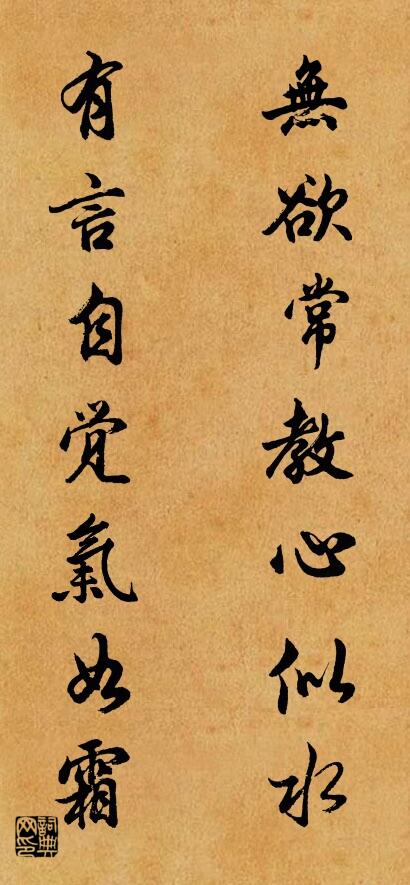 無欲常教心似水
有言自覺氣如霜
詞典網印